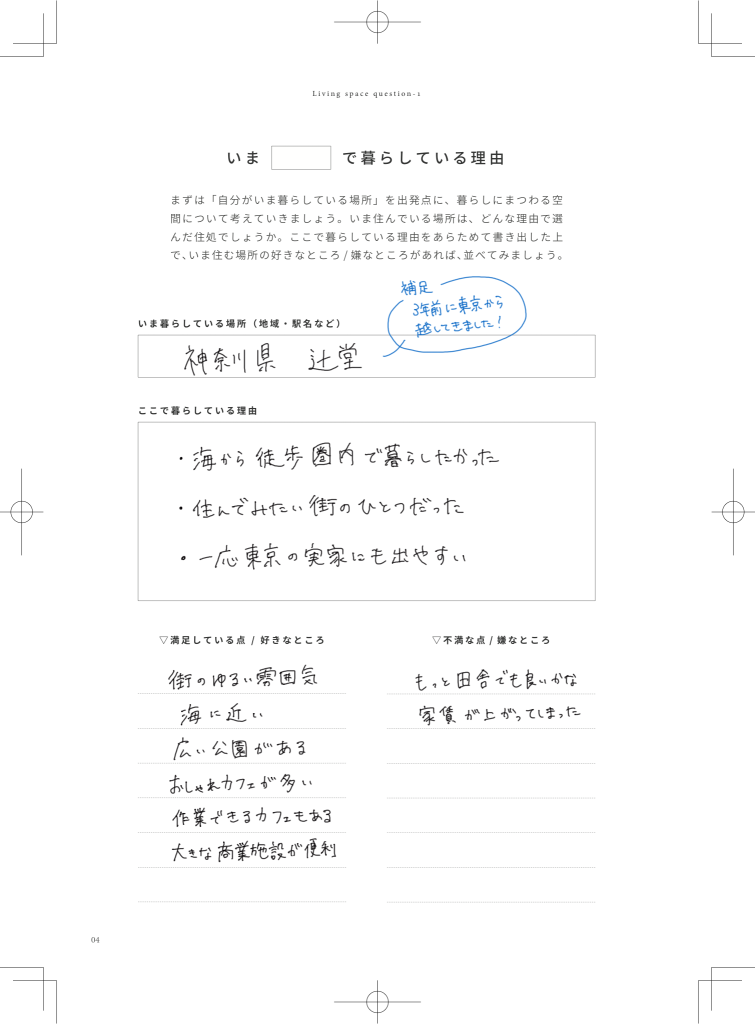 Living space question-1
いま で暮らしている理由
まずは「自分がいま暮らしている場所」を出発点に、暮らしにまつわる空
間について考えていきましょう。いま住んでいる場所は、どんな理由で選
んだ住処でしょうか。ここで暮らしている理由をあらためて書き出した上
で、いま住む場所の好きなところ / 嫌なところがあれば、並べてみましょう。
補足
3年前に東京から
越してきました!
いま暮らしている場所（地域・駅名など）
神奈川県 辻堂
ここで暮らしている理由
・海から徒歩圏内で暮らしたかった
・住んでみたい街のひとつだった
・一応東京の実家にも出やすい
▽満足している点 / 好きなところ
街のゆるい雰囲気
海に近い
広い公園がある
おしゃれカフェが多い
作業できるカフェもある
大きな商業施設が便利
▽不満な点 / 嫌なところ
もっと田舎でも良いかな
家賃が上がってしまった
04